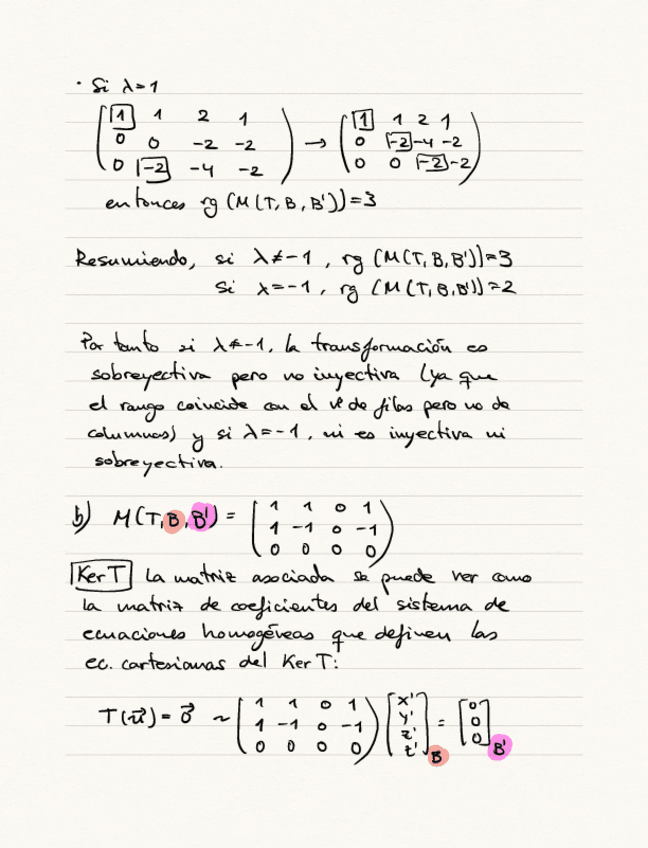 · Si λ=1
( 1 1 2 1 ; 0 0 -2 -2 ; 0 -2 -4 -2 ) → ( 1 1 2 1 ; 0 -2 -4 -2 ; 0 0 -2 -2 )
entonces rg (M(T,B,B'))=3
Resumiendo, si λ≠-1, rg (M(T,B,B'))=3
Si λ=-1, rg (M(T,B,B'))=2
Por tanto si λ≠-1, la transformación es
sobreyectiva pero no inyectiva (ya que
el rango coincide con el nº de filas pero no de
columnas) y si λ=-1, ni es inyectiva ni
sobreyectiva.
b) M(T,B,B') = ( 1 1 0 1 ; 1 -1 0 -1 ; 0 0 0 0 )
Ker T La matriz asociada se puede ver como
la matriz de coeficientes del sistema de
ecuaciones homogéneas que definen las
ec. cartesianas del Ker T:
T(u⃗) = 0⃗ ~ ( 1 1 0 1 ; 1 -1 0 -1 ; 0 0 0 0 ) [ x' ; y' ; z' ; t' ]B = [ 0 ; 0 ; 0 ]B'